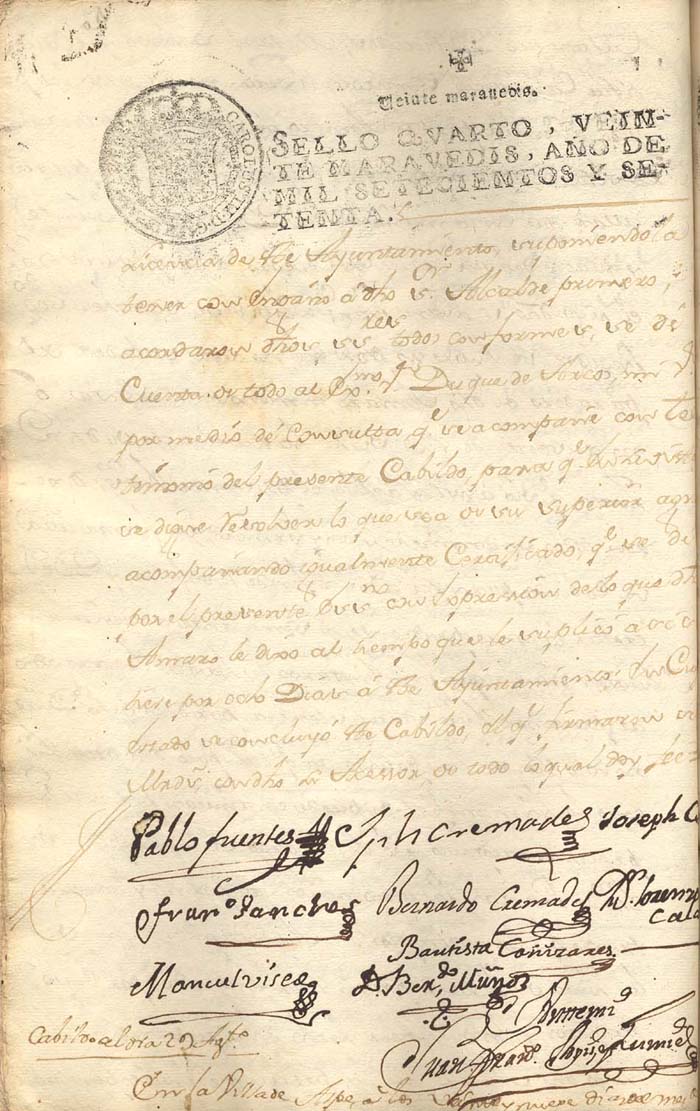 Veinte maravedis.
SELLO QVARTO, VEIN-
TE MARAVEDIS, AÑO DE
MIL SETECIENTOS Y SE-
TENTA.
CAROLUS III D G
licencia de este Ayuntamiento, suponiendo la
tener con dho Sr. Alcalde primero,
acordaron dhos ss. res todos conformes, se dé
Cuenta de todo al Exmo. Sr. Duque de Arcos, mi
por medio de Consulta qe. se acompañe con tes
timonio del presente Cabildo para qe.
se digne resolver lo que sea de su superior agr
acompañando igualmente Certificado, qe. se dé
por el presente Essno. con expresion de lo que Dn
Amaro le dixo al tiempo que le suplicó
por ocho Dias á este Ayuntamiento. En Cu
estado se concluyó este Cabildo, el qe. firmaron
con dho Sr. Asesor, de todo lo qual doy fee
Pablo fuentes Jph Cremades Joseph
Franco. Sanches Bernardo Cremades D. Lorenzo
Bautista Cañizares
Manuel D. Berdo. Muñoz
Antemi
Juan
Cabildo a los 29 Agto.
En la Villa de Aspe, a los veinte y nueve dias de mes